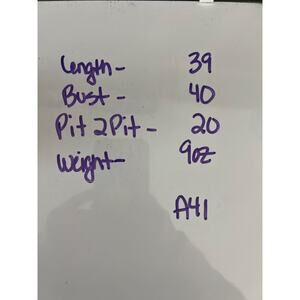 Length- 39
Bust- 40
Pit 2 Pit- 20
Weight- 9oz
A41